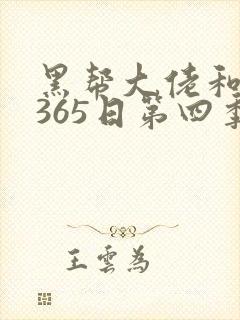 黑帮大佬和
365日第四季
王雲為